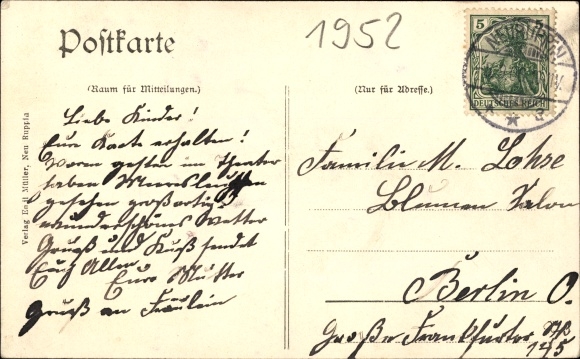 Postkarte
1952
(Raum für Mitteilungen.)
(Nur für Adresse.)
5 5
NEURUPPIN
DEUTSCHES REICH
Verlag Emil Müller, Neu Ruppin
Liebe Kinder!
Eure Karte erhalten!
Waren gestern im Theater
haben
gesehen großartig!
wunderschönes Wetter
Gruß und Kuß sendet
Euch Allen
Eure Mutter
Gruß an Fräulein
Familie M. Lohse
Blumen Salon
Berlin O.
Große Frankfurter Str
145